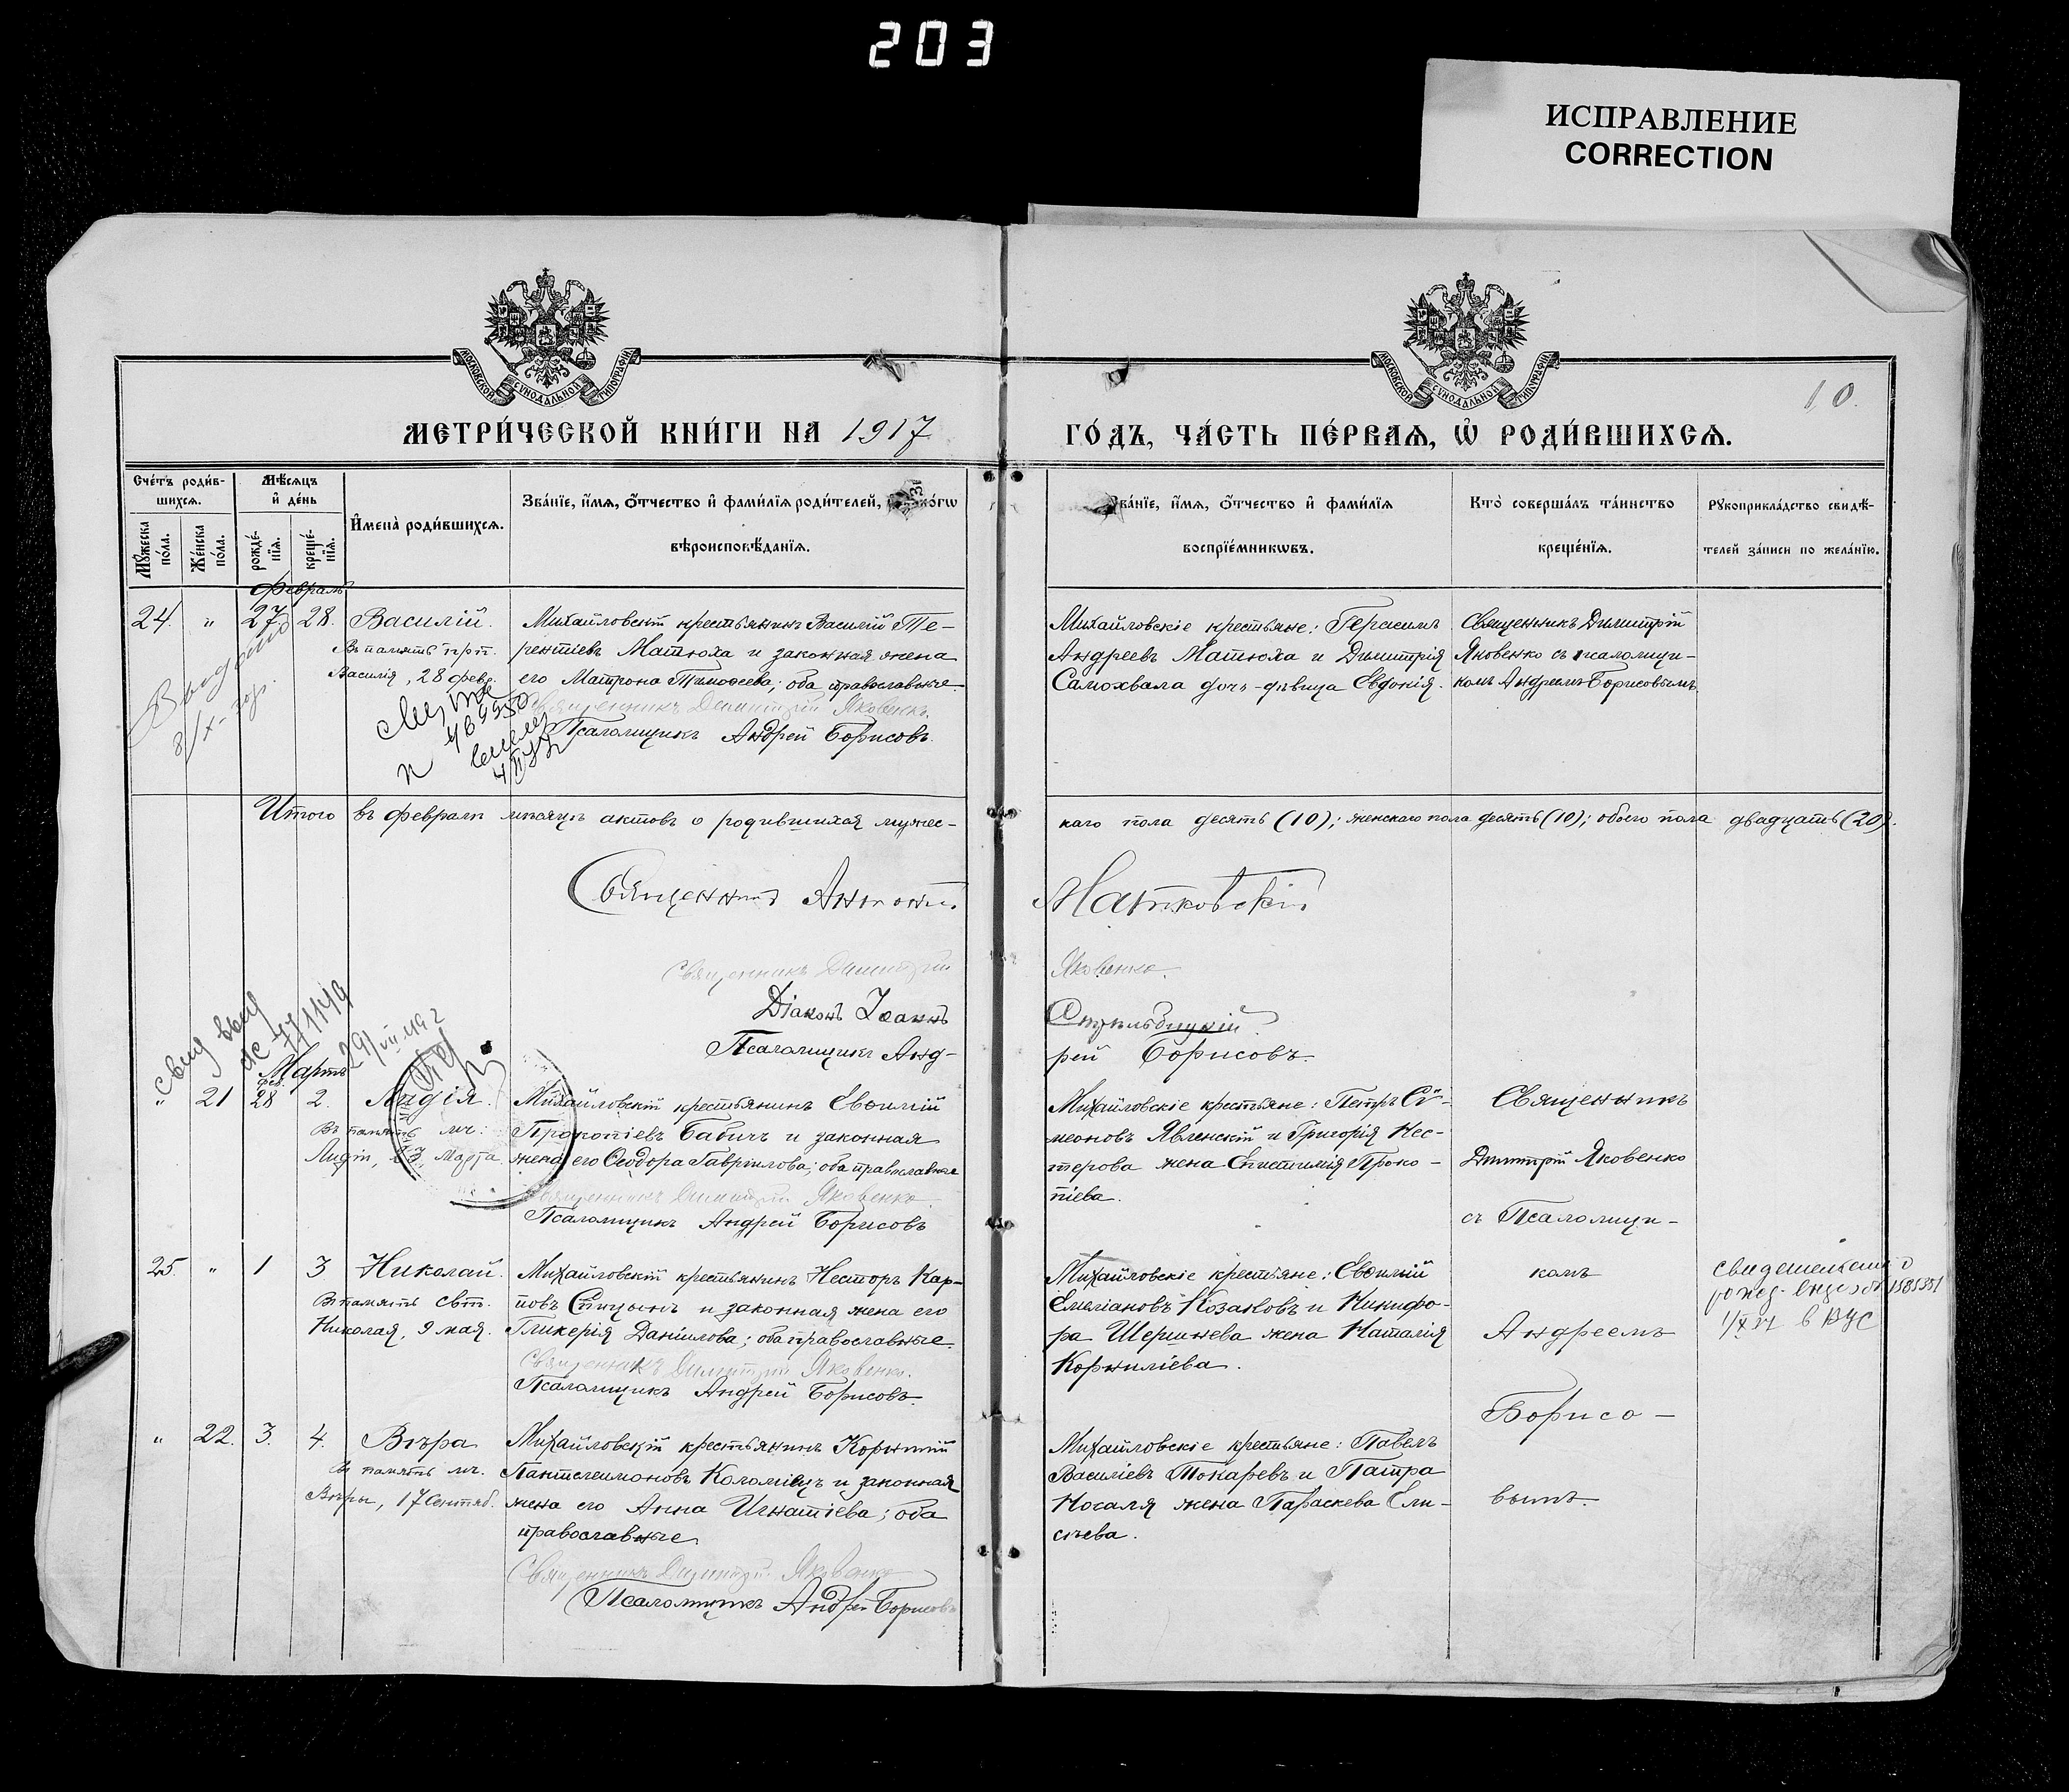 203
ИСПРАВЛЕНИЕ
CORRECTION
МОСКОВСКОЙ СѴНОДАЛЬНОЙ ТИПОГРАФІИ
МОСКОВСКОЙ СѴНОДАЛЬНОЙ ТИПОГРАФІИ
10.
МЕТРИ́ЧЕСКОЙ КНИ́ГИ НА 1917
ГО́ДЪ, ЧА́СТЬ ПЕ́РВАѦ, Ѡ҆ РОДИ́ВШИХСѦ.
Сче́тъ роди́в-
шихсѧ.
Мꙋ́жеска по́ла.
Же́нска по́ла.
Мѣ́сѧцъ
и҆ де́нь
рожде́-
нїѧ.
креще́-
нїѧ.
И҆мена̀ роди́вшихсѧ.
Зва́нїе, и҆́мѧ, ѻ҆́тчество и҆ фами́лїѧ роди́телей, и҆ како́гѡ
вѣроисповѣ́данїѧ.
Зва́нїе, и҆́мѧ, ѻ҆́тчество и҆ фами́лїѧ
воспрїе́мникѡвъ.
Кто̀ соверша́лъ та́инство
креще́нїѧ.
Рꙋкоприкла́дство свидѣ́-
телей за́писи по жела́нїю.
Февраль
24. " 27 28. Василій.
Въ память прп.
Василія, 28 февр.
Михайловскій крестьянинъ Василій Те-
рентіевъ Матюха и законная жена
его Матрона Тимоѳеева; оба православные.
Священникъ Димитрій Яковенко.
Псаломщикъ Андрей Борисовъ.
Михайловскіе крестьяне: Герасимъ
Андреевъ Матюха и Димитрія
Самохвала дочь-дѣвица Евдокія.
Священникъ Димитрій
Яковенко съ псаломщи-
комъ Андреемъ Борисовымъ
Итого въ февралѣ мѣсяцѣ актовъ о родившихся мужес-
каго пола десять (10); женскаго пола десять (10); обоего пола двадцать (20).
Священникъ Антоній
Матковскій
Священникъ Димитрій
Яковенко.
Діаконъ Іоаннъ
Псаломщикъ Анд-
рей Борисовъ.
Мартъ
фев.
" 21 28 2. Лидія.
Въ память мч.
Лидіи, 23 Марта.
Михайловскій крестьянинъ Евѳимій
Прокопіевъ Бабичъ и законная
жена его Ѳеодора Гавріилова; оба православные
Священникъ Димитрій Яковенко.
Псаломщикъ Андрей Борисовъ
Михайловскіе крестьяне: Петръ Си-
меоновъ Явленскій и Григорія Нес-
терова жена Епистимія Проко-
піева.
Священникъ
Димитрій Яковенко
съ Псаломщи-
25. " 1 3 Николай.
Въ память свт.
Николая, 9 мая.
Михайловскій крестьянинъ Несторъ Кар-
повъ Спицынъ и законная жена его
Гликерія Даніилова; оба православные.
Священникъ Димитрій Яковенко.
Псаломщикъ Андрей Борисовъ.
Михайловскіе крестьяне: Евѳимій
Емеліановъ Козаковъ и Никифо-
ра Шершнева жена Наталія
Корниліева.
комъ
Андреемъ
" 22. 3. 4. Вѣра
Въ память мч.
Вѣры, 17 Сентяб.
Михайловскій крестьянинъ Корнилій
Пантелеимоновъ Коломіецъ и законная
жена его Анна Игнатіева; оба
православные.
Священникъ Димитрій Яковенко
Псаломщикъ Андрей Борисовъ
Михайловскіе крестьяне: Павелъ
Василіевъ Токаревъ и Патра
Носаля жена Параскева Ели-
сѣева.
Борисо-
вымъ.